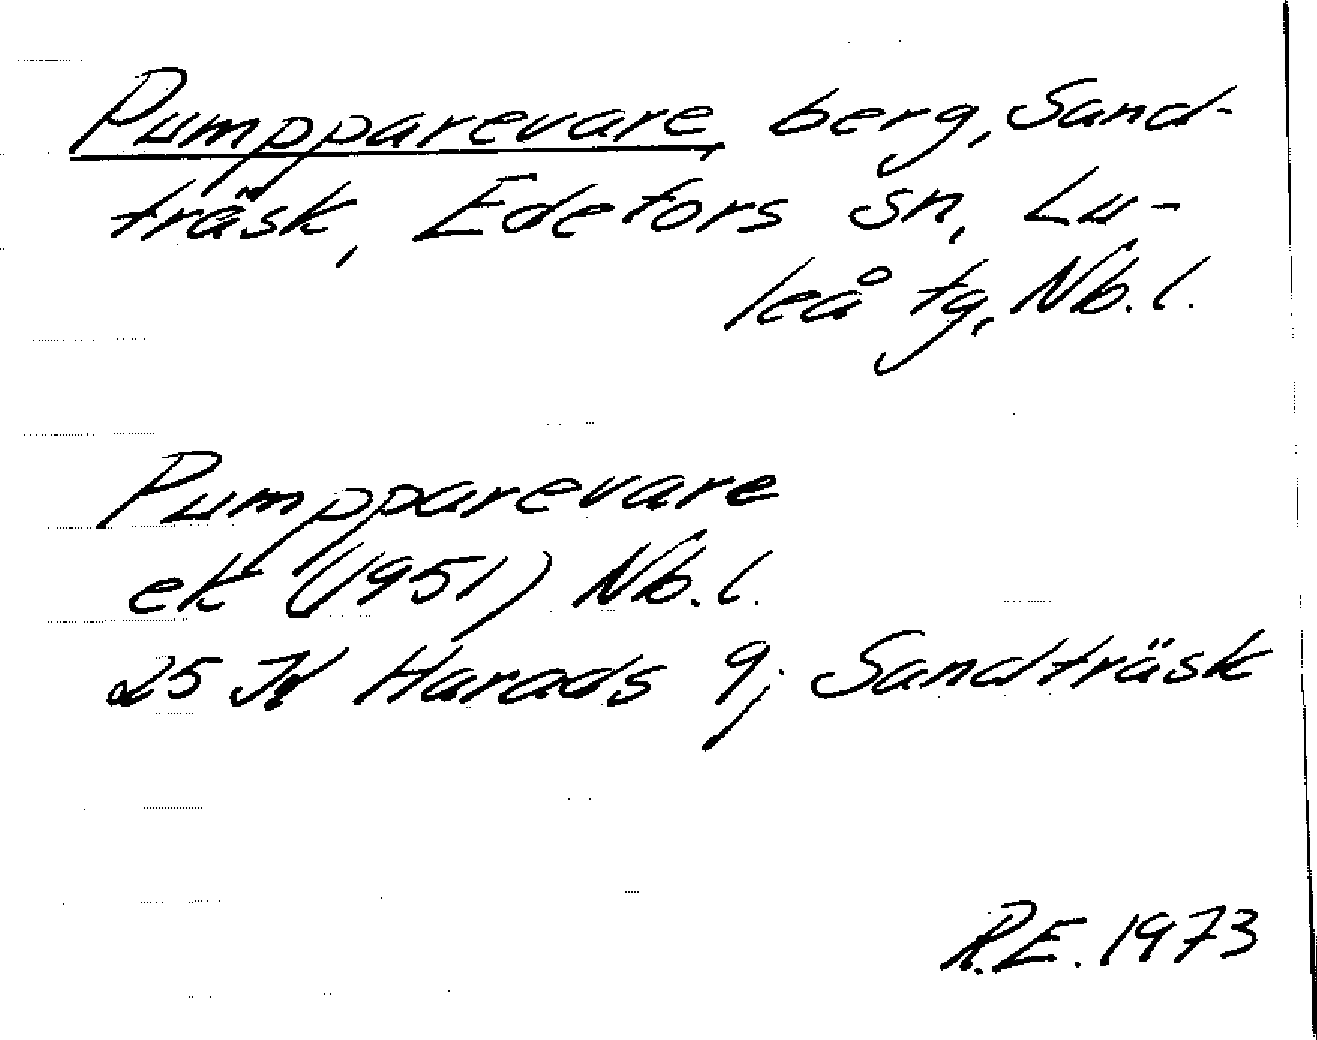 Pumpparevare, berg, Sand-
träsk, Edefors sn, Lu-
leå tg, Nb. l.
Pumpparevare
ek (1951) Nb. l.
25 Harads 9; Sandträsk
R.E. 1973